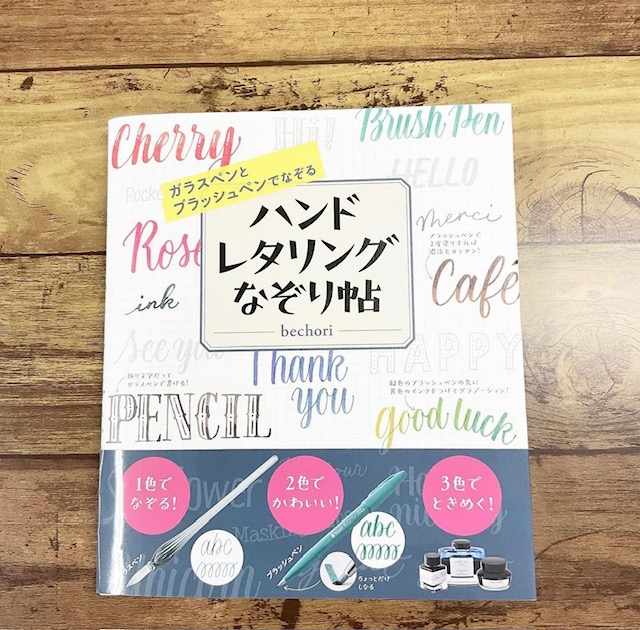 Cherry
Hi!
Brush Pen
ガラスペンと
ブラッシュペンでなぞる
HELLO
ハンド
レタリング
なぞり帖
bechori
merci
ブラッシュペンで
2度塗りすれば
濃淡もカンタン!
Rose
Café
ink
See you
Thank
you
HAPPY
飾り文字だって
ガラスペンで書ける!
緑色のブラッシュペンの先に
黄色のインクをつけてグラデーション!
PENCIL
good luck
1色で
なぞる!
2色で
かわいい!
3色で
ときめく!
abc
abc
ガラスペン
ブラッシュペン
ちょっとだけ
しなる